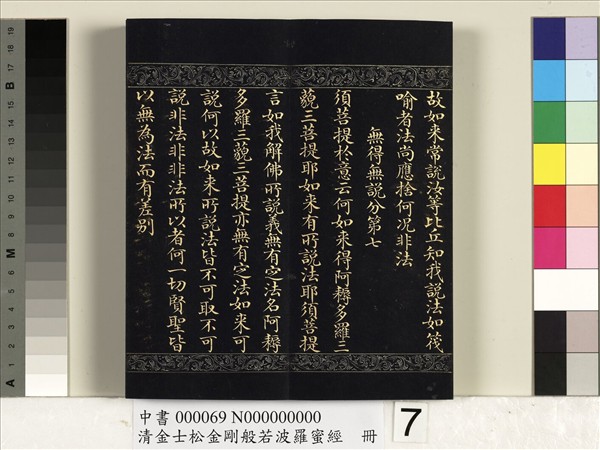 故如來常說汝等比丘知我說法如筏
喻者法尚應捨何況非法
無得無說分第七
須菩提於意云何如來得阿耨多羅三
藐三菩提耶如來有所說法耶須菩提
言如我解佛所說義無有定法名阿耨
多羅三藐三菩提亦無有定法如來可
說何以故如來所說法皆不可取不可
說非法非非法所以者何一切賢聖皆
以無為法而有差別
中書 000069 N000000000
清金士松金剛般若波羅蜜經 冊
7